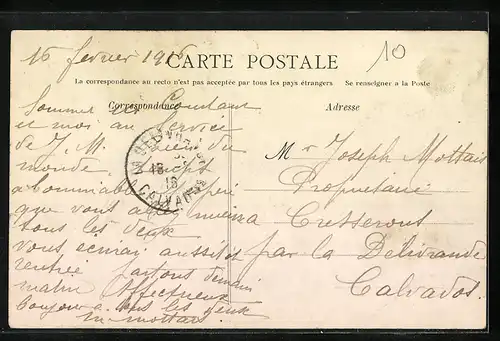 16 février 1916
10
CARTE POSTALE
La correspondance au recto n'est pas acceptée par tous les pays étrangers Se renseigner à la Poste
Correspondance
Adresse
Sommes
et moi au Service
de J. M.
monde
abominable
que vous allez
tous les deux
vous écrirai aussitôt
rentrée Partons demain
matin Affectueux
Bonjour à tous les deux
M. Mottais
CALVADOS
Mr Joseph Mottais
Propriétaire
a Cresserons
par la Délivrande
Calvados